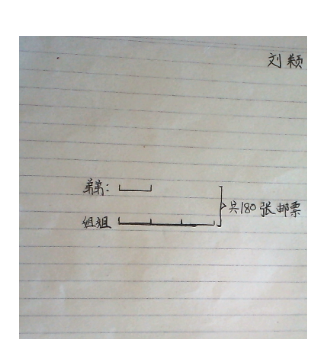 刘颖
弟弟:
姐姐
共180张邮票